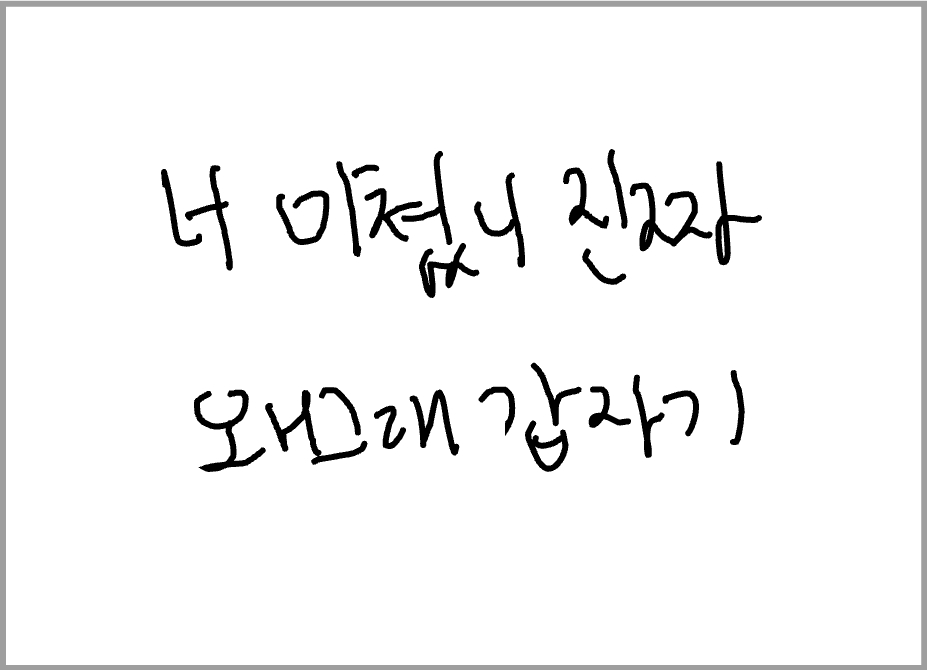 너 미쳤니 진짜
왜그래 갑자기